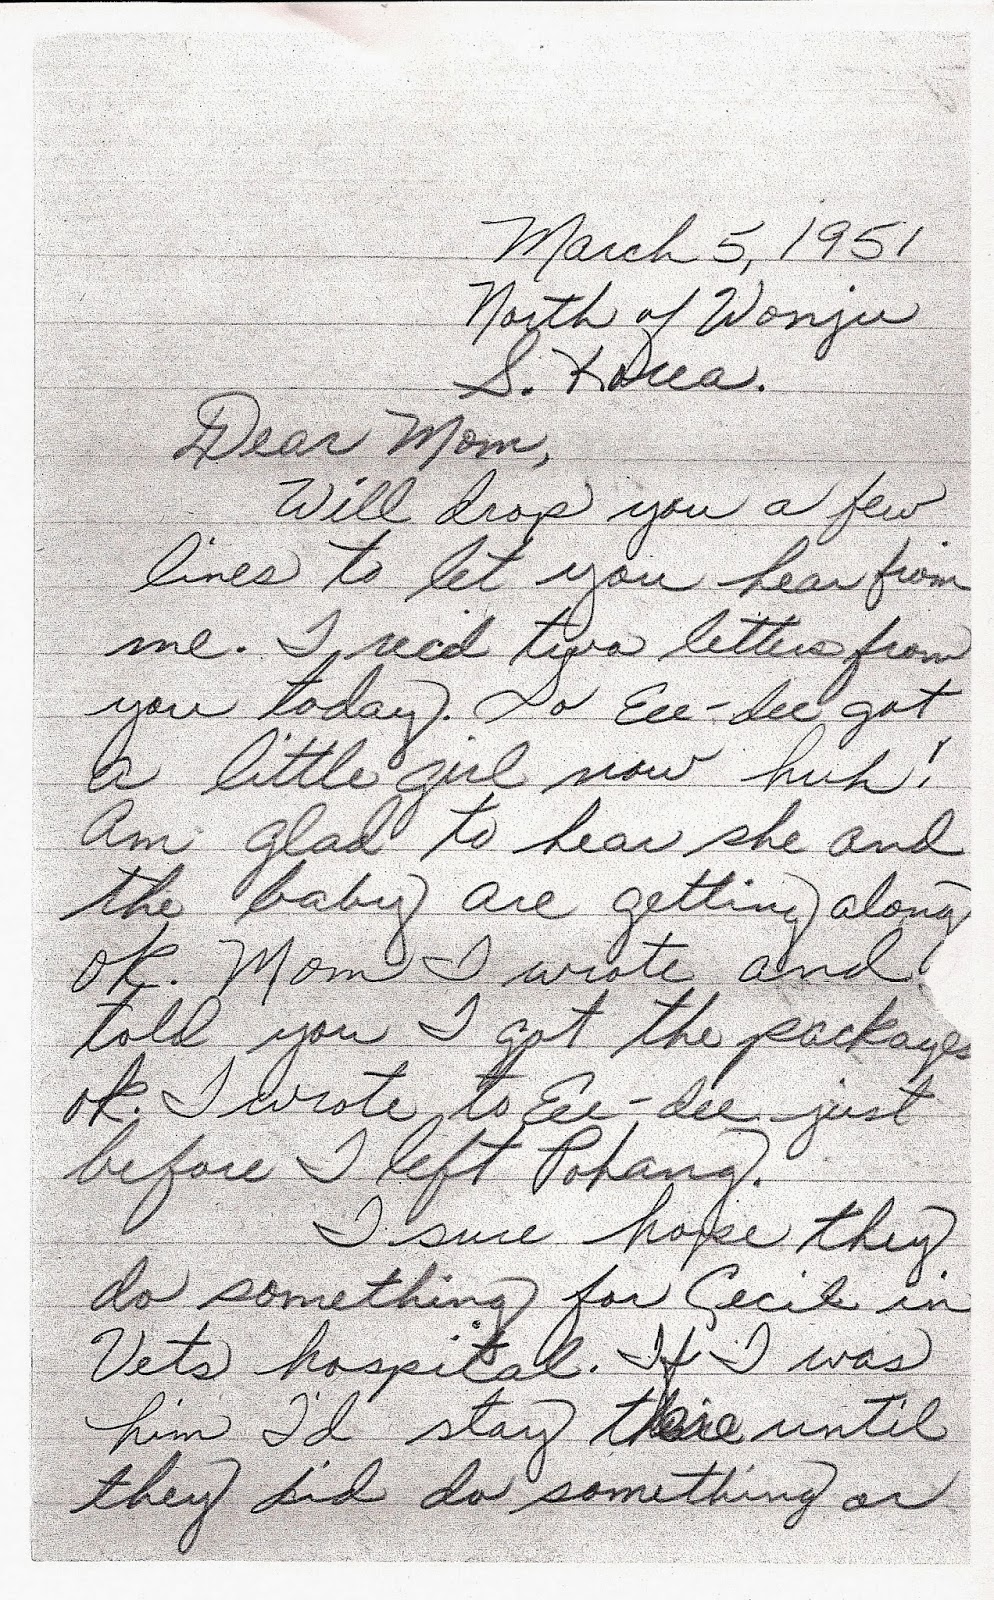 March 5, 1951
North of Wonju
S. Korea.
Dear Mom,
Will drop you a few
lines to let you hear from
me. I rec'd two letters from
you today. So Eee-dee got
a little girl now huh!
Am glad to hear she and
the baby are getting along
ok. Mom I wrote and
told you I got the packages
ok. I wrote to Eee-dee just
before I left Pohang.
I sure hope they
do something for Cecil in
Vets hospital. If I was
him I'd stay there until
they did do something or